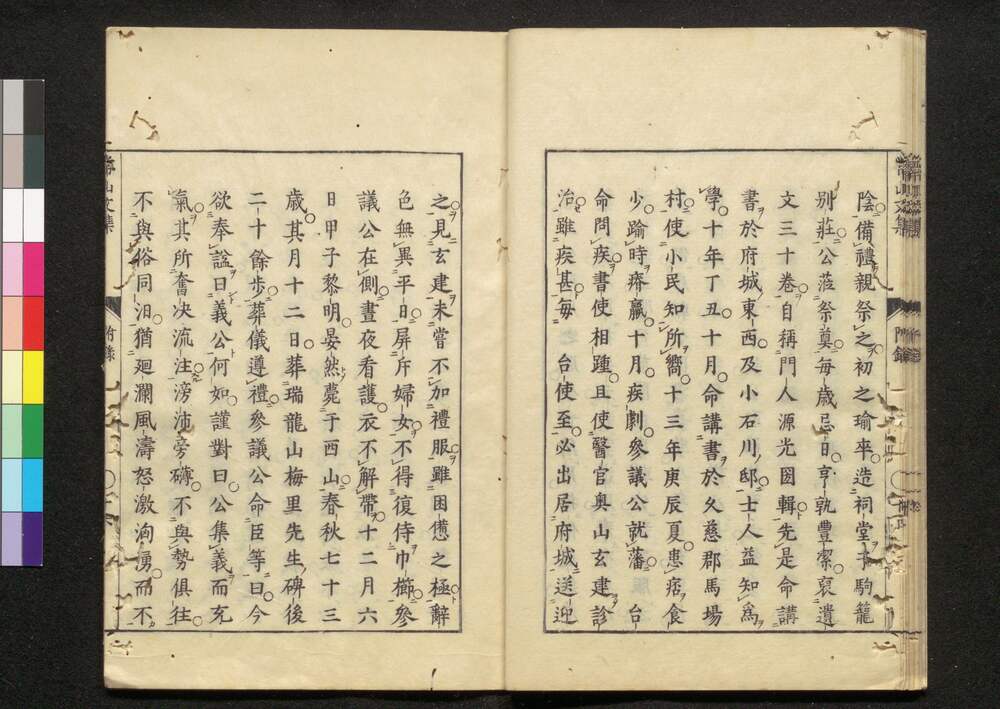 陰備禮親祭之初之瑜卒造祠堂于駒籠
別莊公莅祭奠每歲忌日亨孰豐潔裒遺
文三十卷自稱門人源光圀輯先是命講
書於府城東西及小石川邸士人益知爲
學十年丁丑十月命講書於久慈郡馬場
村使小民知所嚮十三年庚辰夏患痞食
少踰時瘠羸十月疾劇參議公就藩台
命問疾書使相踵且使醫官奥山玄建診
治雖疾甚每台使至必出居府城送迎
之見玄建未嘗不加禮服雖困憊之極辭
色無異平日屏斥婦女不得復侍巾櫛參
議公在側晝夜看護衣不解帶十二月六
日甲子黎明晏然薨于西山春秋七十三
歲其月十二日葬瑞龍山梅里先生碑後
二十餘步葬儀遵禮參議公命臣等曰今
欲奉諡曰義公何如謹對曰公集義而充
氣其所奮决流注滂沛旁礴不與勢俱往
不與俗同汨猶廻瀾風濤怒激洶湧而不